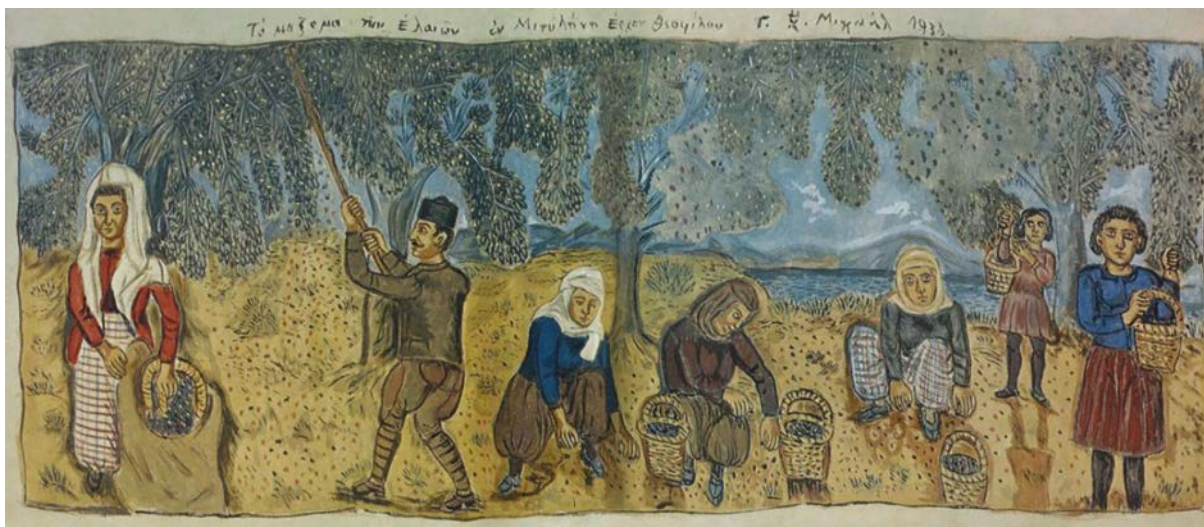 Τό μάζεμα τῶν ἐλαιῶν ἐν Μιτυλήνη Ἔργον Θεοφίλου Γ. Χ. Μιχαήλ 1933